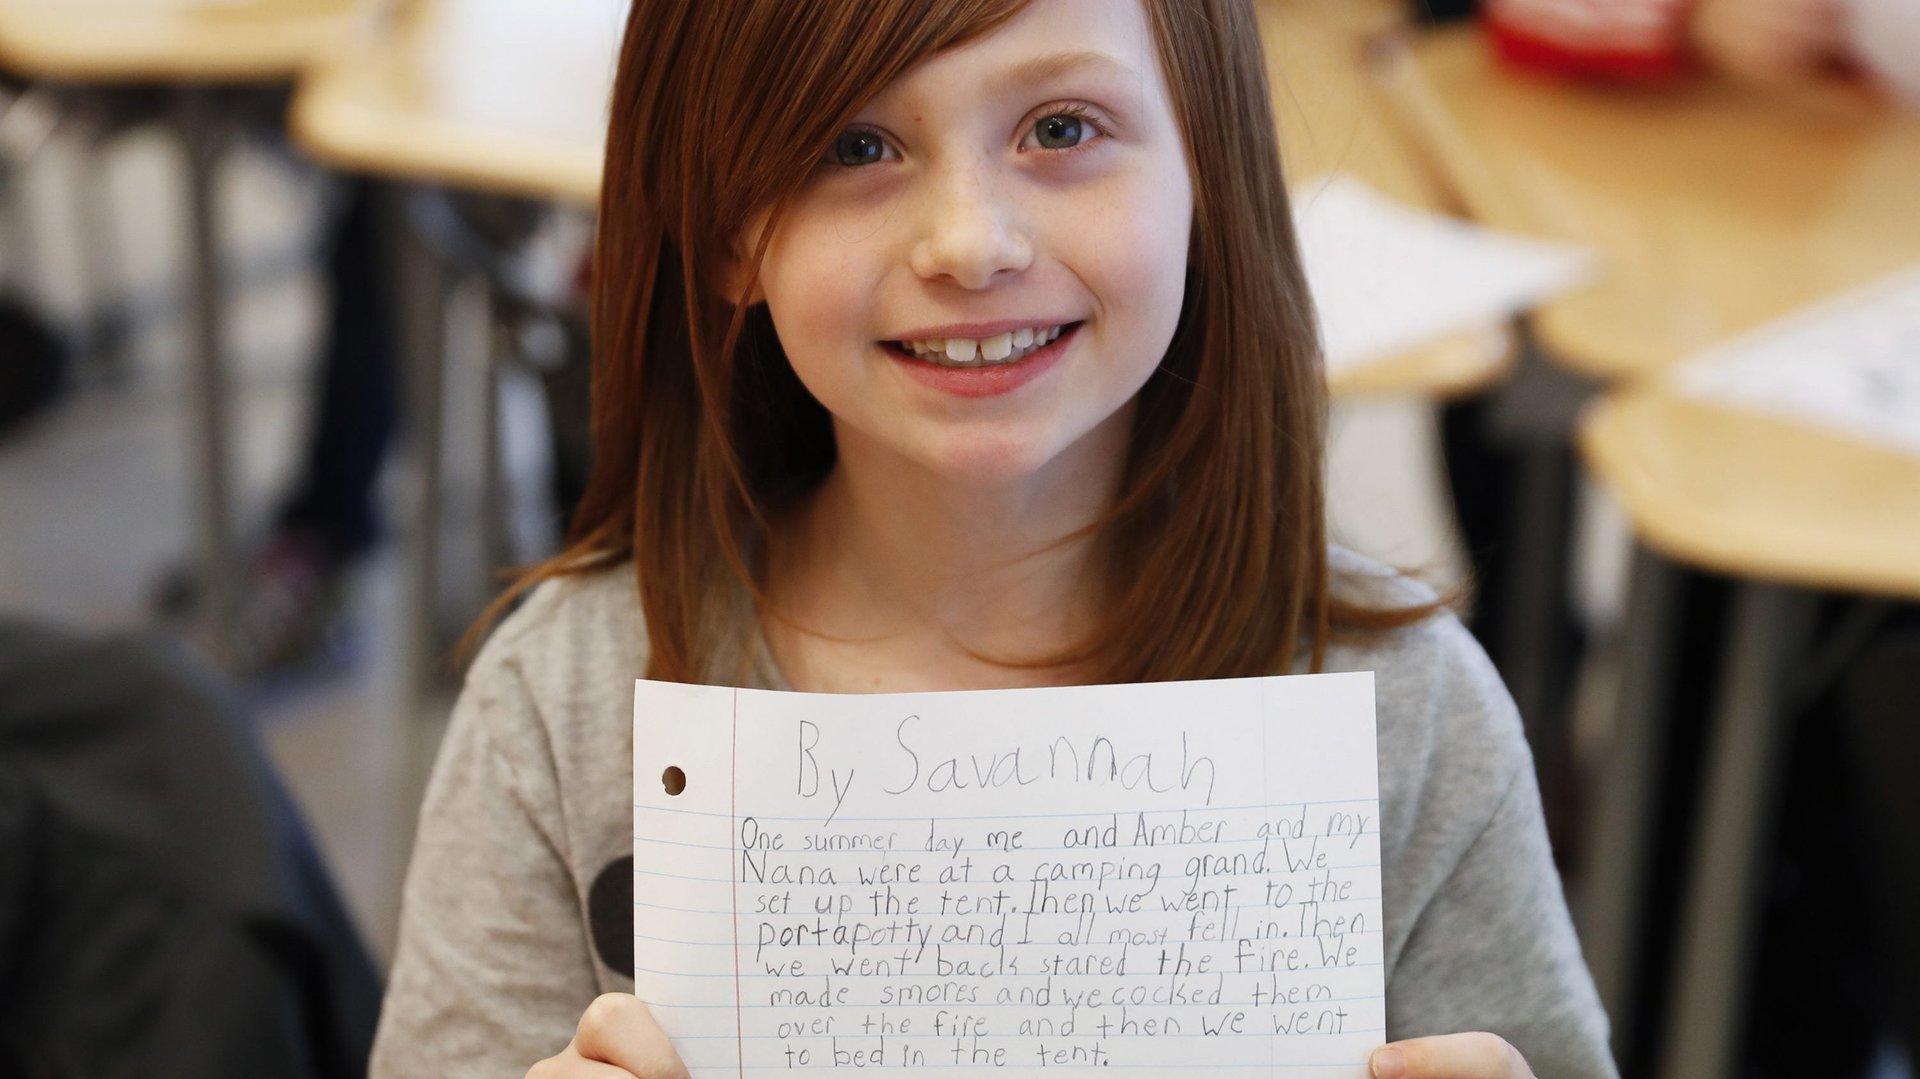 By Savannah
One summer day me and Amber and my
Nana were at a camping grand. We
set up the tent. Then we went to the
portapotty and I all most fell in. Then
we went back stared the fire. We
made smores and we cocked them
over the fire and then we went
to bed in the tent.